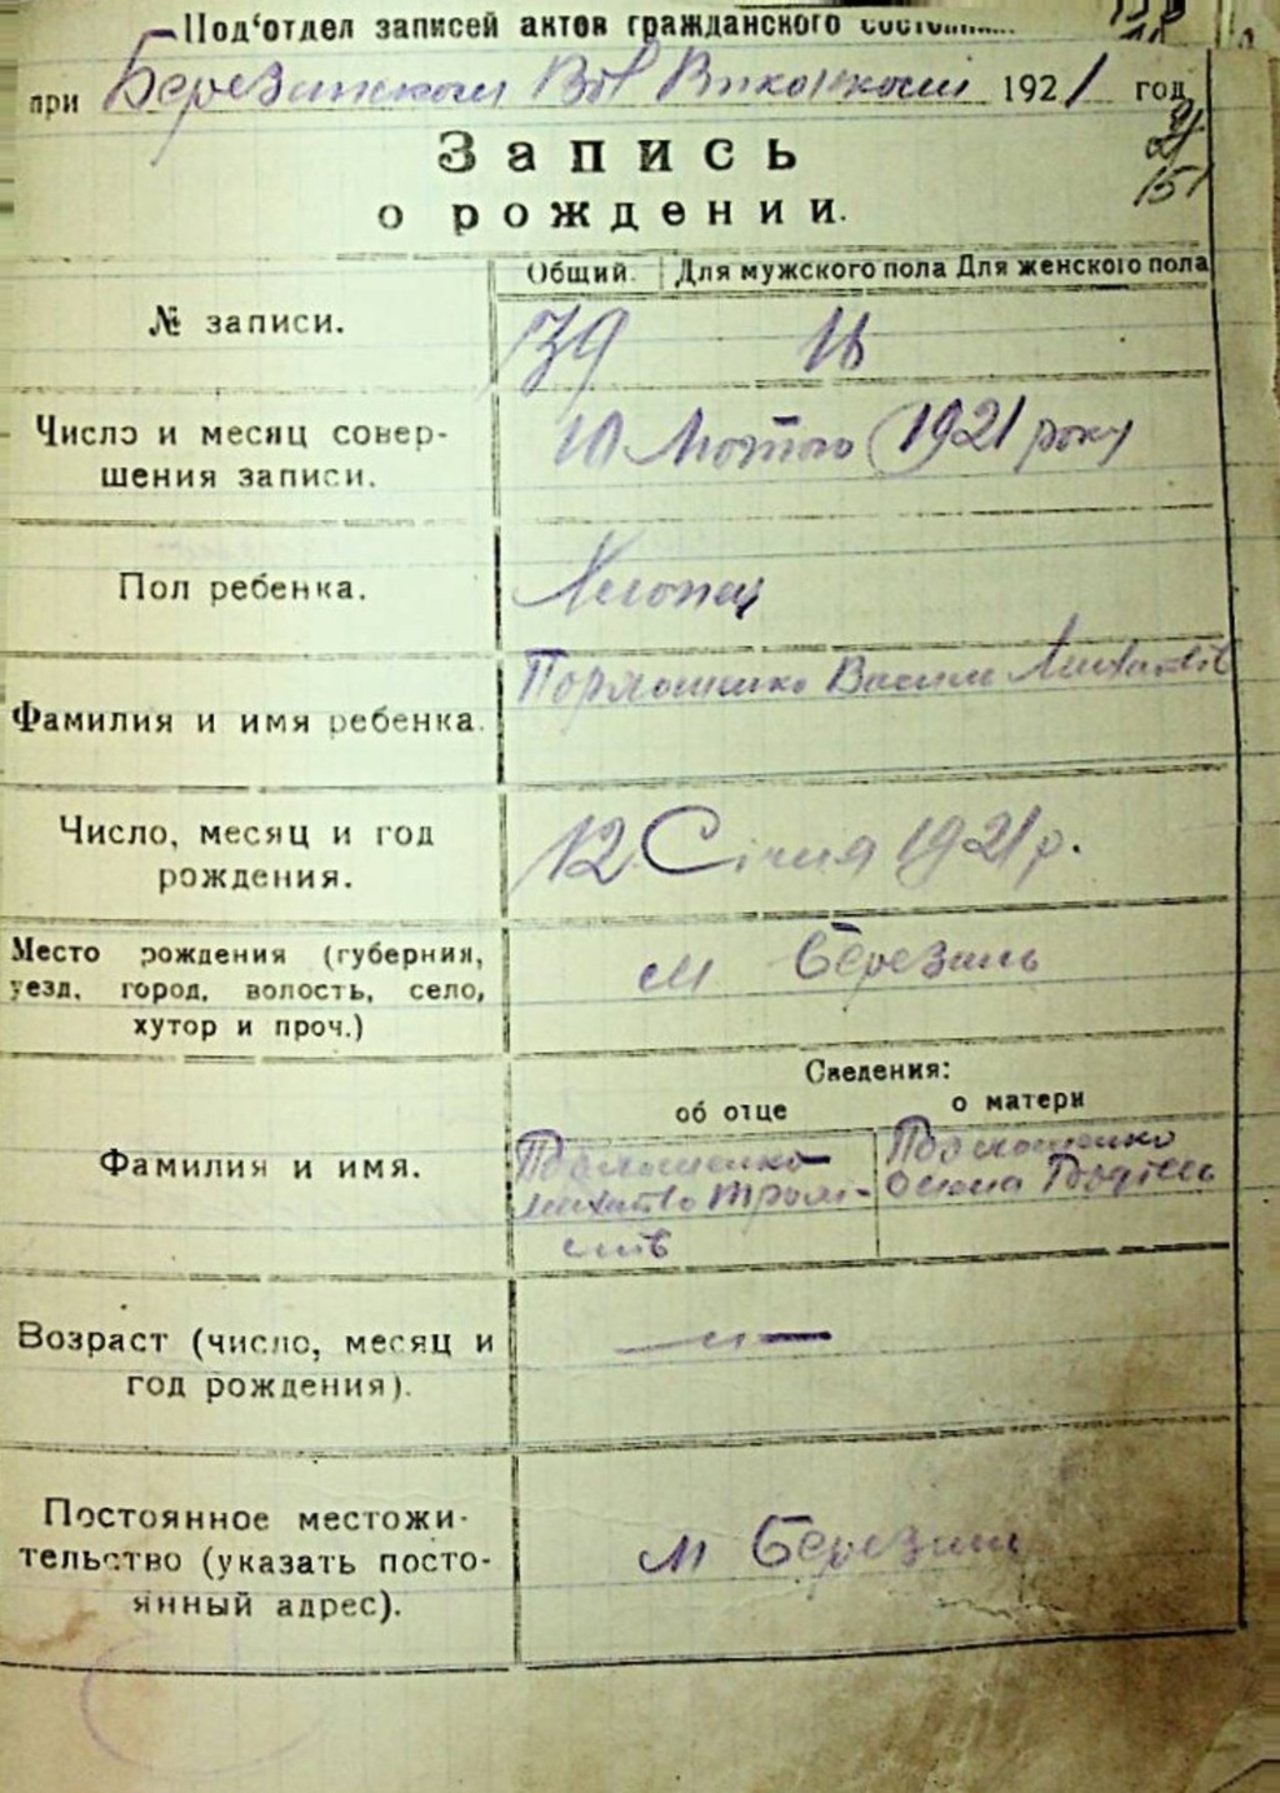 Под'отдел записей актов гражданского
при Березанском Вол Виконкоми 1921 год
151
Запись
о рождении.
Общий. Для мужского пола Для женского пола
№ записи. 39 16
Число и месяц совер-
шения записи.
10 Лютого 1921 року
Пол ребенка. Хлопец
Фамилия и имя ребенка.
Василь
Число, месяц и год
рождения.
12 Січня 1921 р.
Место рождения (губерния,
уезд, город, волость, село,
хутор и проч.)
м Березань
Сведения:
об отце о матери
Фамилия и имя.
Возраст (число, месяц и
год рождения).
Постоянное местожи-
тельство (указать посто-
янный адрес).
м Березань